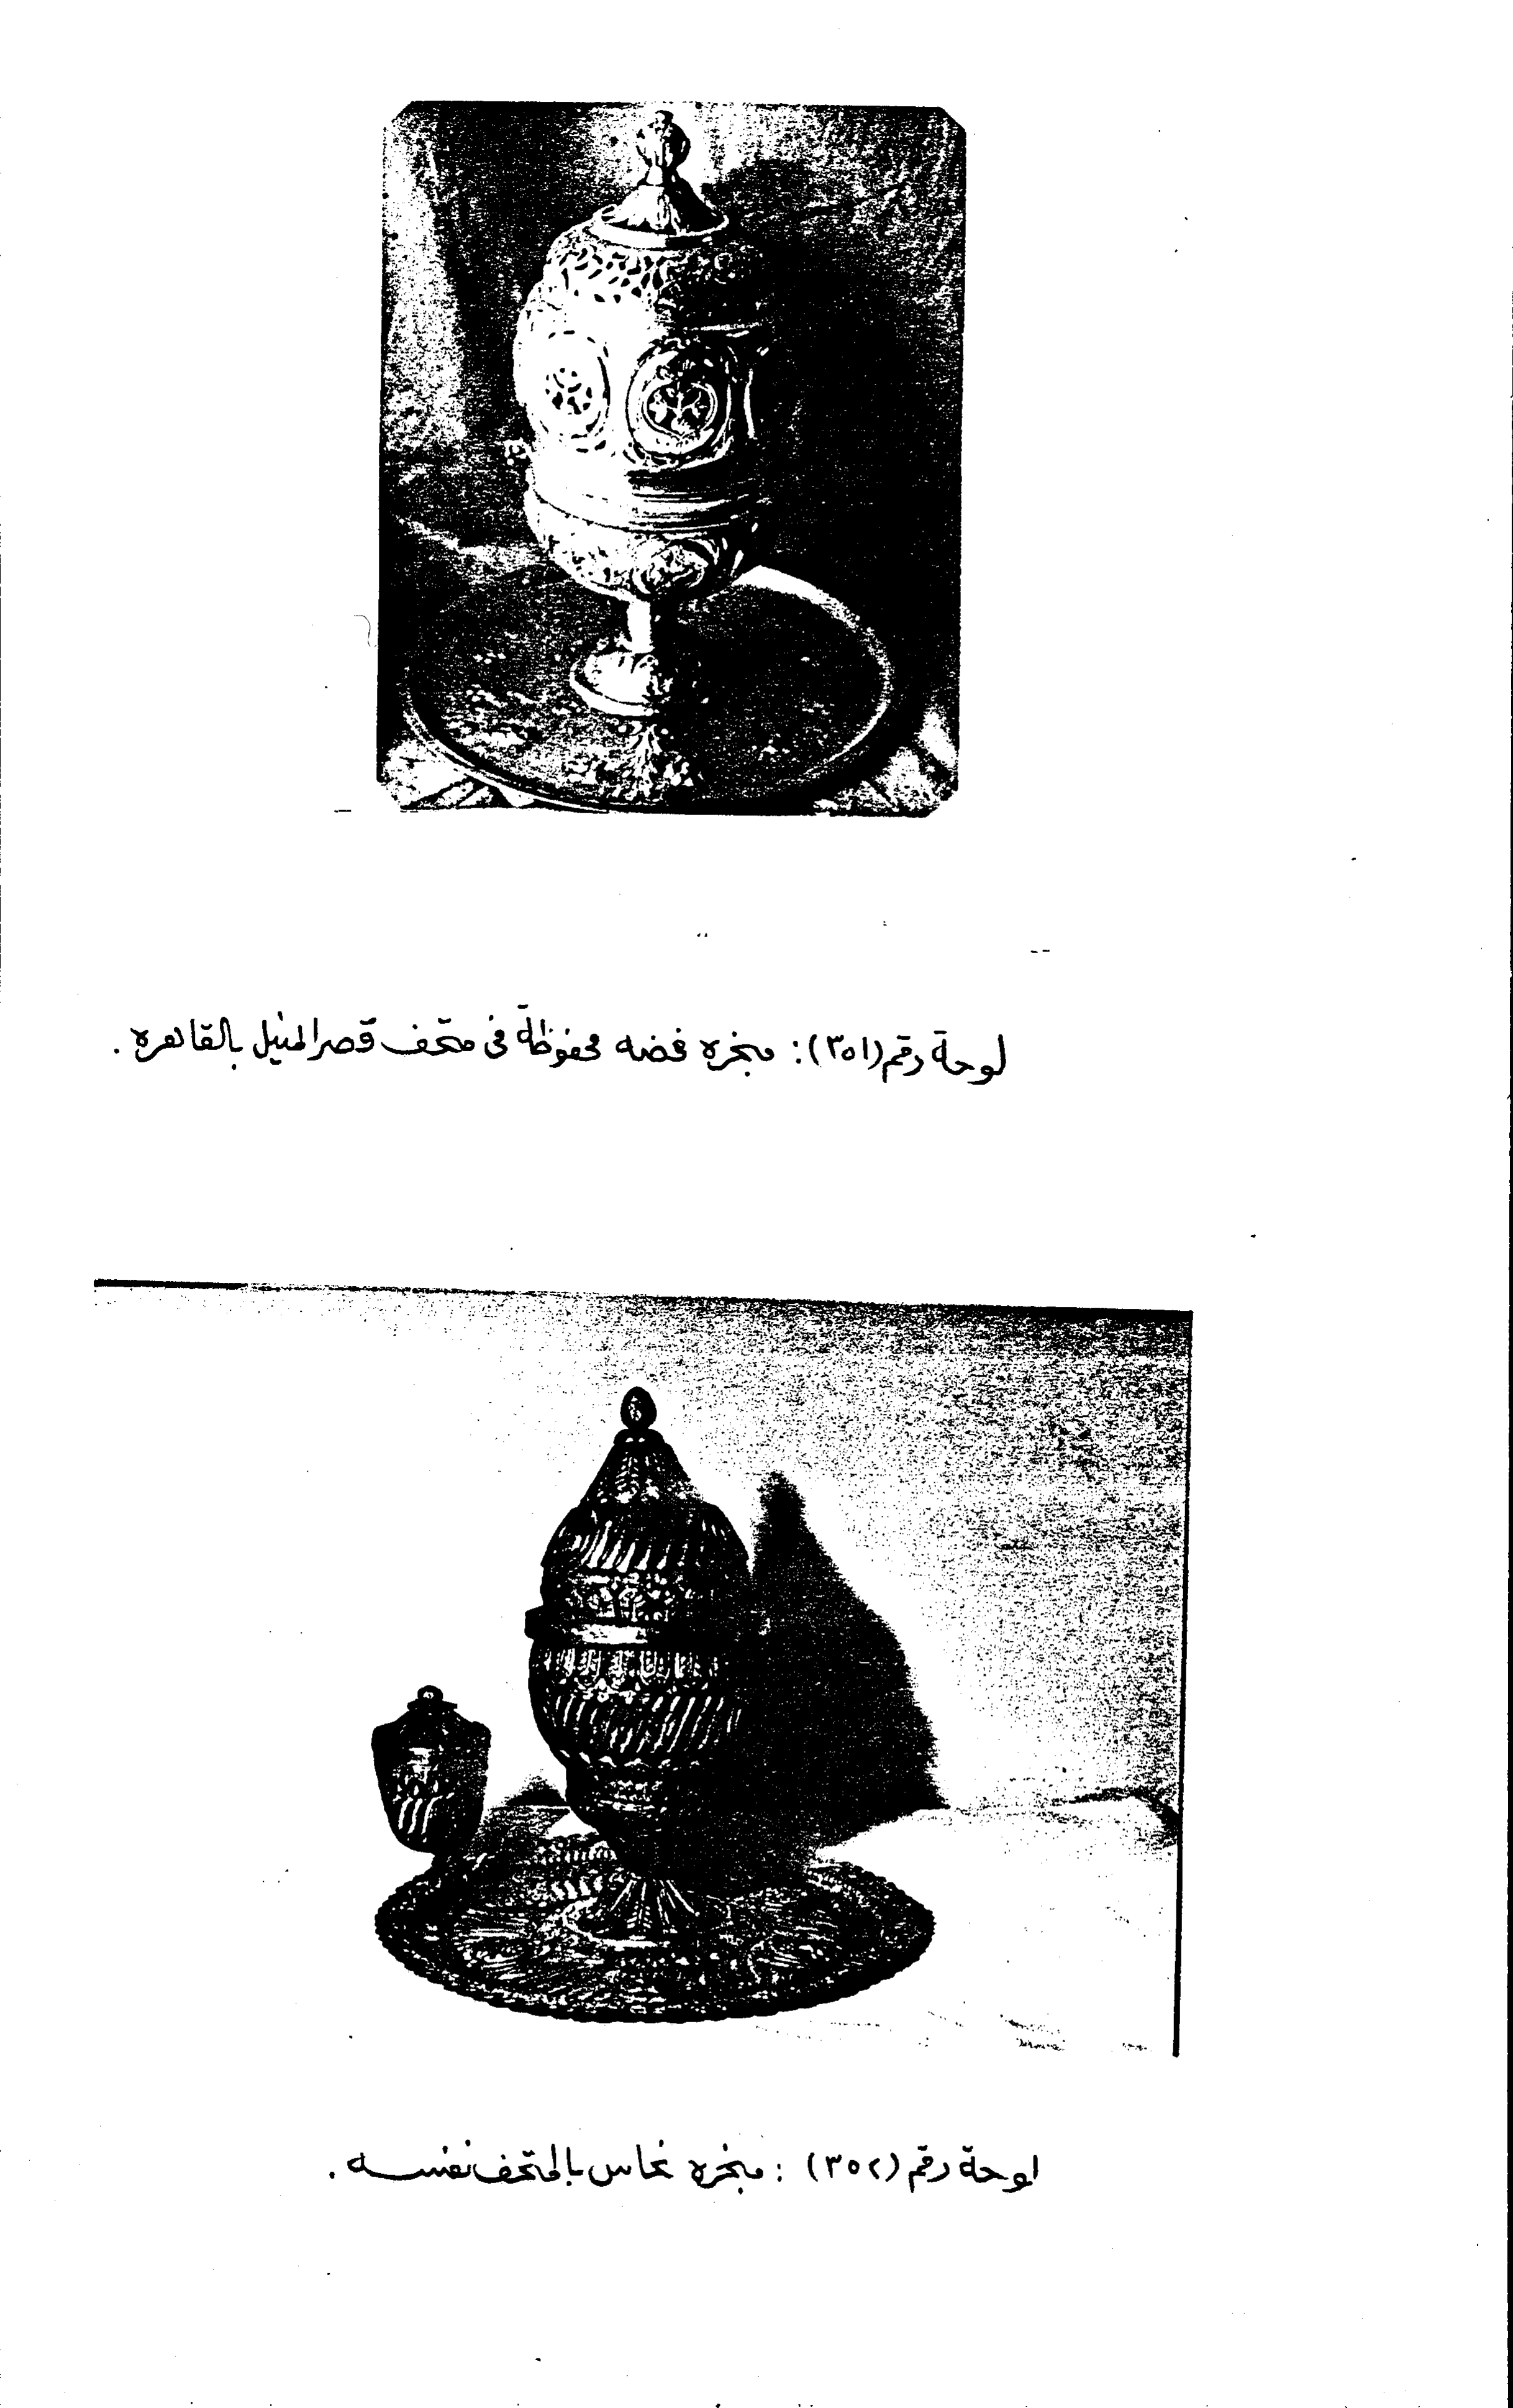 لوحة رقم (٣٥١): مبخره فضه محفوظة فى متحف قصر المنيل بالقاهره .
لوحة رقم (٣٥٢) : مبخره نحاس بالمتحف نفسه .